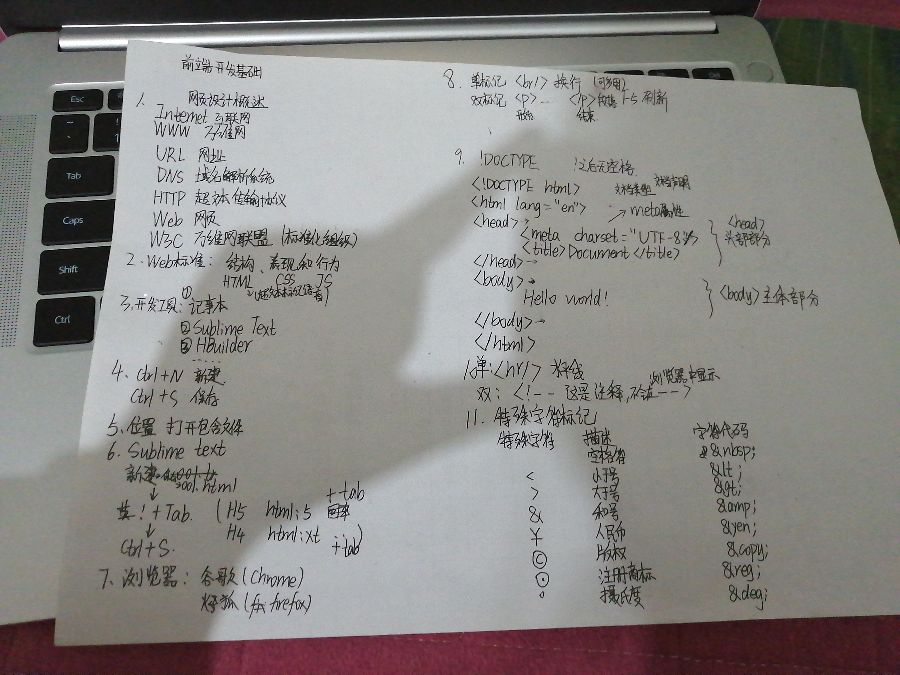 Esc
Tab
Caps
Shift
Ctrl
前端开发基础
1. 网页设计概述
Internet 互联网
WWW 万维网
URL 网址
DNS 域名解析系统
HTTP 超文本传输协议
Web 网页
W3C 万维网联盟 (标准化组织)
2. Web标准: 结构、表现和行为
HTML CSS JS
(超文本标记语言)
3. 开发工具: 记事本
②Sublime Text
③HBuilder
4. Ctrl+N 新建
Ctrl+S 保存
5. 位置 打开包含文件
6. Sublime text
新建
001.html
↓
英! + Tab. (H5 html:5 +tab
↓ H4 html:xt +tab)
Ctrl+S.
7. 浏览器: 谷歌 (Chrome)
火狐 (firefox)
8. 单标记 <br/> 换行
双标记 <p> … </p> 段落 F5 刷新
开始 结束
9. !DOCTYPE !之后无空格
<!DOCTYPE html> 文档类型 文档声明
<html lang="en"> → meta属性
<head>
<meta charset="UTF-8"/>
<title>Document</title>
</head>
} <head> 头部部分
<body>
Hello world!
</body>
} <body>主体部分
</html>
单: <hr/> 水平线
双: <!-- 这是注释, 不在 --> 浏览器中显示
11. 特殊字符标记
特殊字符 描述 字符代码
空格符 &nbsp;
< 小于号 &lt;
> 大于号 &gt;
& 和号 &amp;
¥ 人民币 &yen;
© 版权 &copy;
注册商标 &reg;
° 摄氏度 &deg;